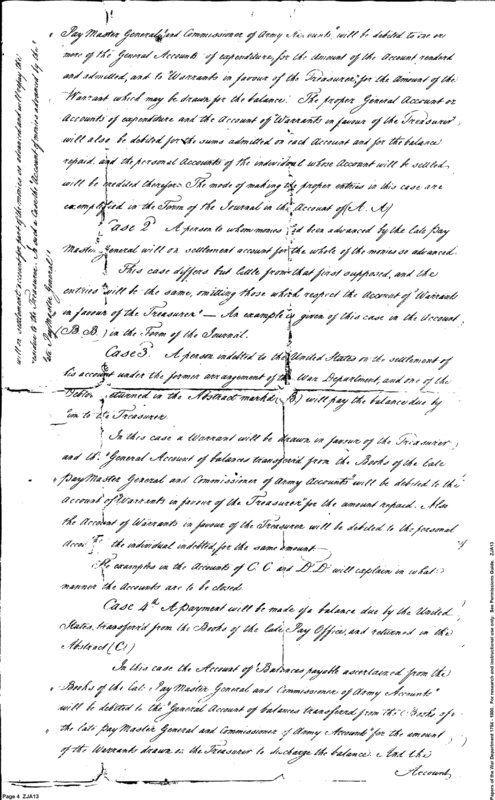 Pay Master General and Commissioner of Army Accounts" will be debited to one or
more of the General Accounts of expenditure, for the amount of the Account rendered
and admitted, and to "Warrants in favour of the Treasurer" for the amount of the
Warrant which may be drawn for the balance. The proper General Account or
Accounts of expenditure and the Account of Warrants in favour of the Treasurer
will also be debited for the sums admitted on each Account and for the balance
repaid, and the personal Accounts of the individual whose Account will be settled
will be credited therefor. The mode of making the proper entries in this case are
exemplified in the Form of the Journal in the Account of (A. A)
Case 2 A person to whom monies had been advanced by the late Pay
Master General will on settlement account for the whole of the monies so advanced.
This case differs but little from that first supposed, and the
entries will be the same, omitting those which respect the Account of "Warrants
in favour of the Treasurer" — An example is given of this case in the Account
(B. B.) in the Form of the Journal.
Case 3. A person indebted to the United States on the settlement of
his account under the former arrangement of the War Department, and one of the
Debtors returned in the Abstract marked (B) will pay the balance due by
him to the Treasurer.
In this case a Warrant will be drawn in favour of the Treasurer
and the "General Account of balances transfer'd from the Books of the late
Pay Master General and Commissioner of Army Accounts" will be debited to the
Account of "Warrants in favour of the Treasurer" for the amount repaid. Also
the Account of Warrants in favour of the Treasurer will be debited to the personal
the individual indebted for the same amount
The examples in the Accounts of C. C and D. D. will explain in what
manner the Accounts are to be closed.
Case 4th A payment will be made of a balance due by the United
States, transfer'd from the Books of the late Pay Office, and returned in the
Abstract (C.)
In this case the Account of "Balances payable ascertained from the
Books of the late Pay Master General and Commissioner of Army Accounts"
will be debited to the "General Account of balances transferred from the Books of
the late Pay Master General and Commissioner of Army Accounts" for the amount
of the Warrants drawn on the Treasurer to discharge the balance. And the
Account
will on settlement, account for part of the monies so advanced and will repay the
residue to the Treasurer. In such a case the "Account of monies advanced by the
late Pay Master General"
Page 4 ZJA13
Papers of the War Department 1784 - 1800. For research and instructional use only. See Permissions Guide. ZJA13